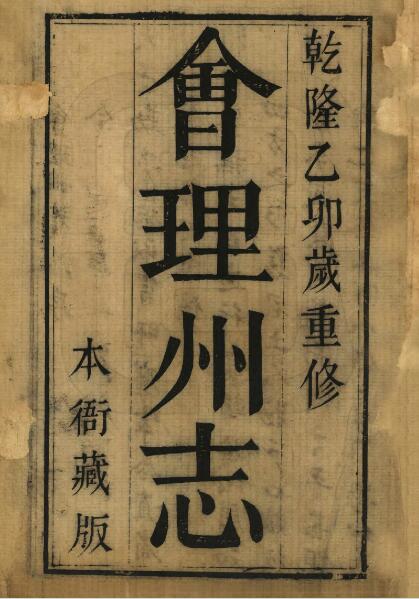 乾隆乙卯歲重修
會理州志
本衙藏版